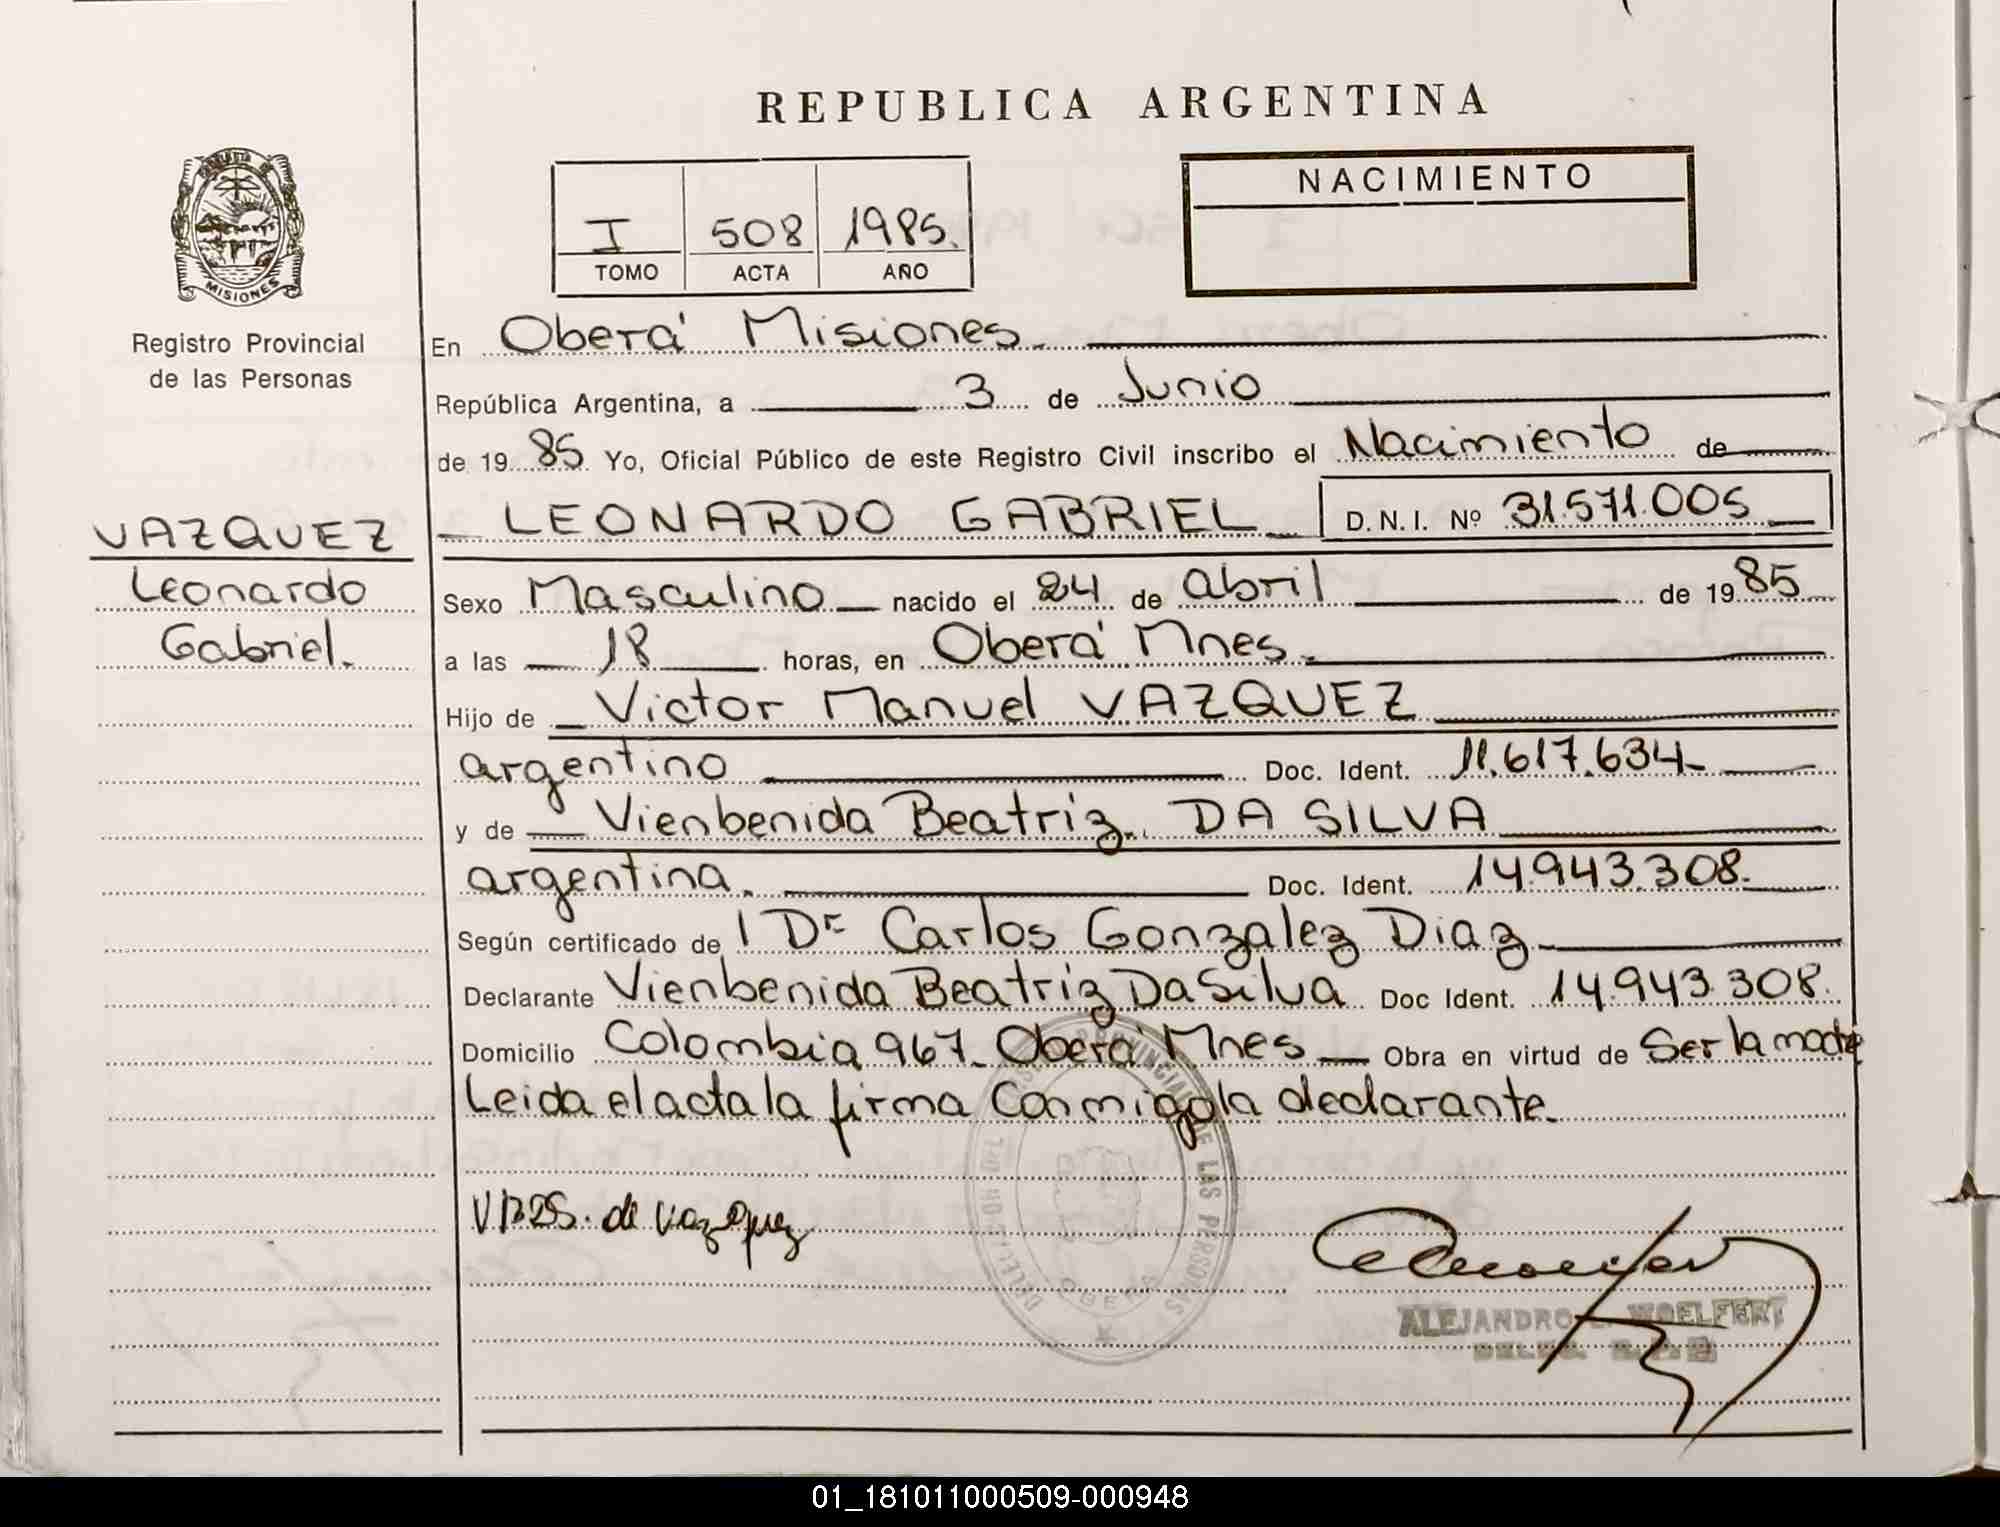 REPUBLICA ARGENTINA
MISIONES
Registro Provincial
de las Personas
I 508 1985.
TOMO ACTA AÑO
NACIMIENTO
En Oberá Misiones.
República Argentina, a 3 de Junio
de 19 85 Yo, Oficial Público de este Registro Civil inscribo el Nacimiento de
VAZQUEZ
Leonardo
Gabriel.
LEONARDO GABRIEL D.N.I. Nº 31.571.005
Sexo Masculino nacido el 24 de abril de 19 85
a las 18 horas, en Oberá Mnes.
Hijo de Victor Manuel VAZQUEZ
argentino Doc. Ident. 11.617.634
y de Vienbenida Beatriz DA SILVA
argentina. Doc. Ident. 14.943.308.
Según certificado de 1 Dr Carlos Gonzalez Diaz
Declarante Vienbenida Beatriz Da Silva Doc Ident. 14.943.308.
Domicilio Colombia 967 Oberá Mnes Obra en virtud de Ser la madre
Leida el acta la firma Conmigo la declarante.
de Vazquez
DELEGACION DEL REGISTRO PROVINCIAL DE LAS PERSONAS
OBERA
ALEJANDRO WOELFERT
01_181011000509-000948